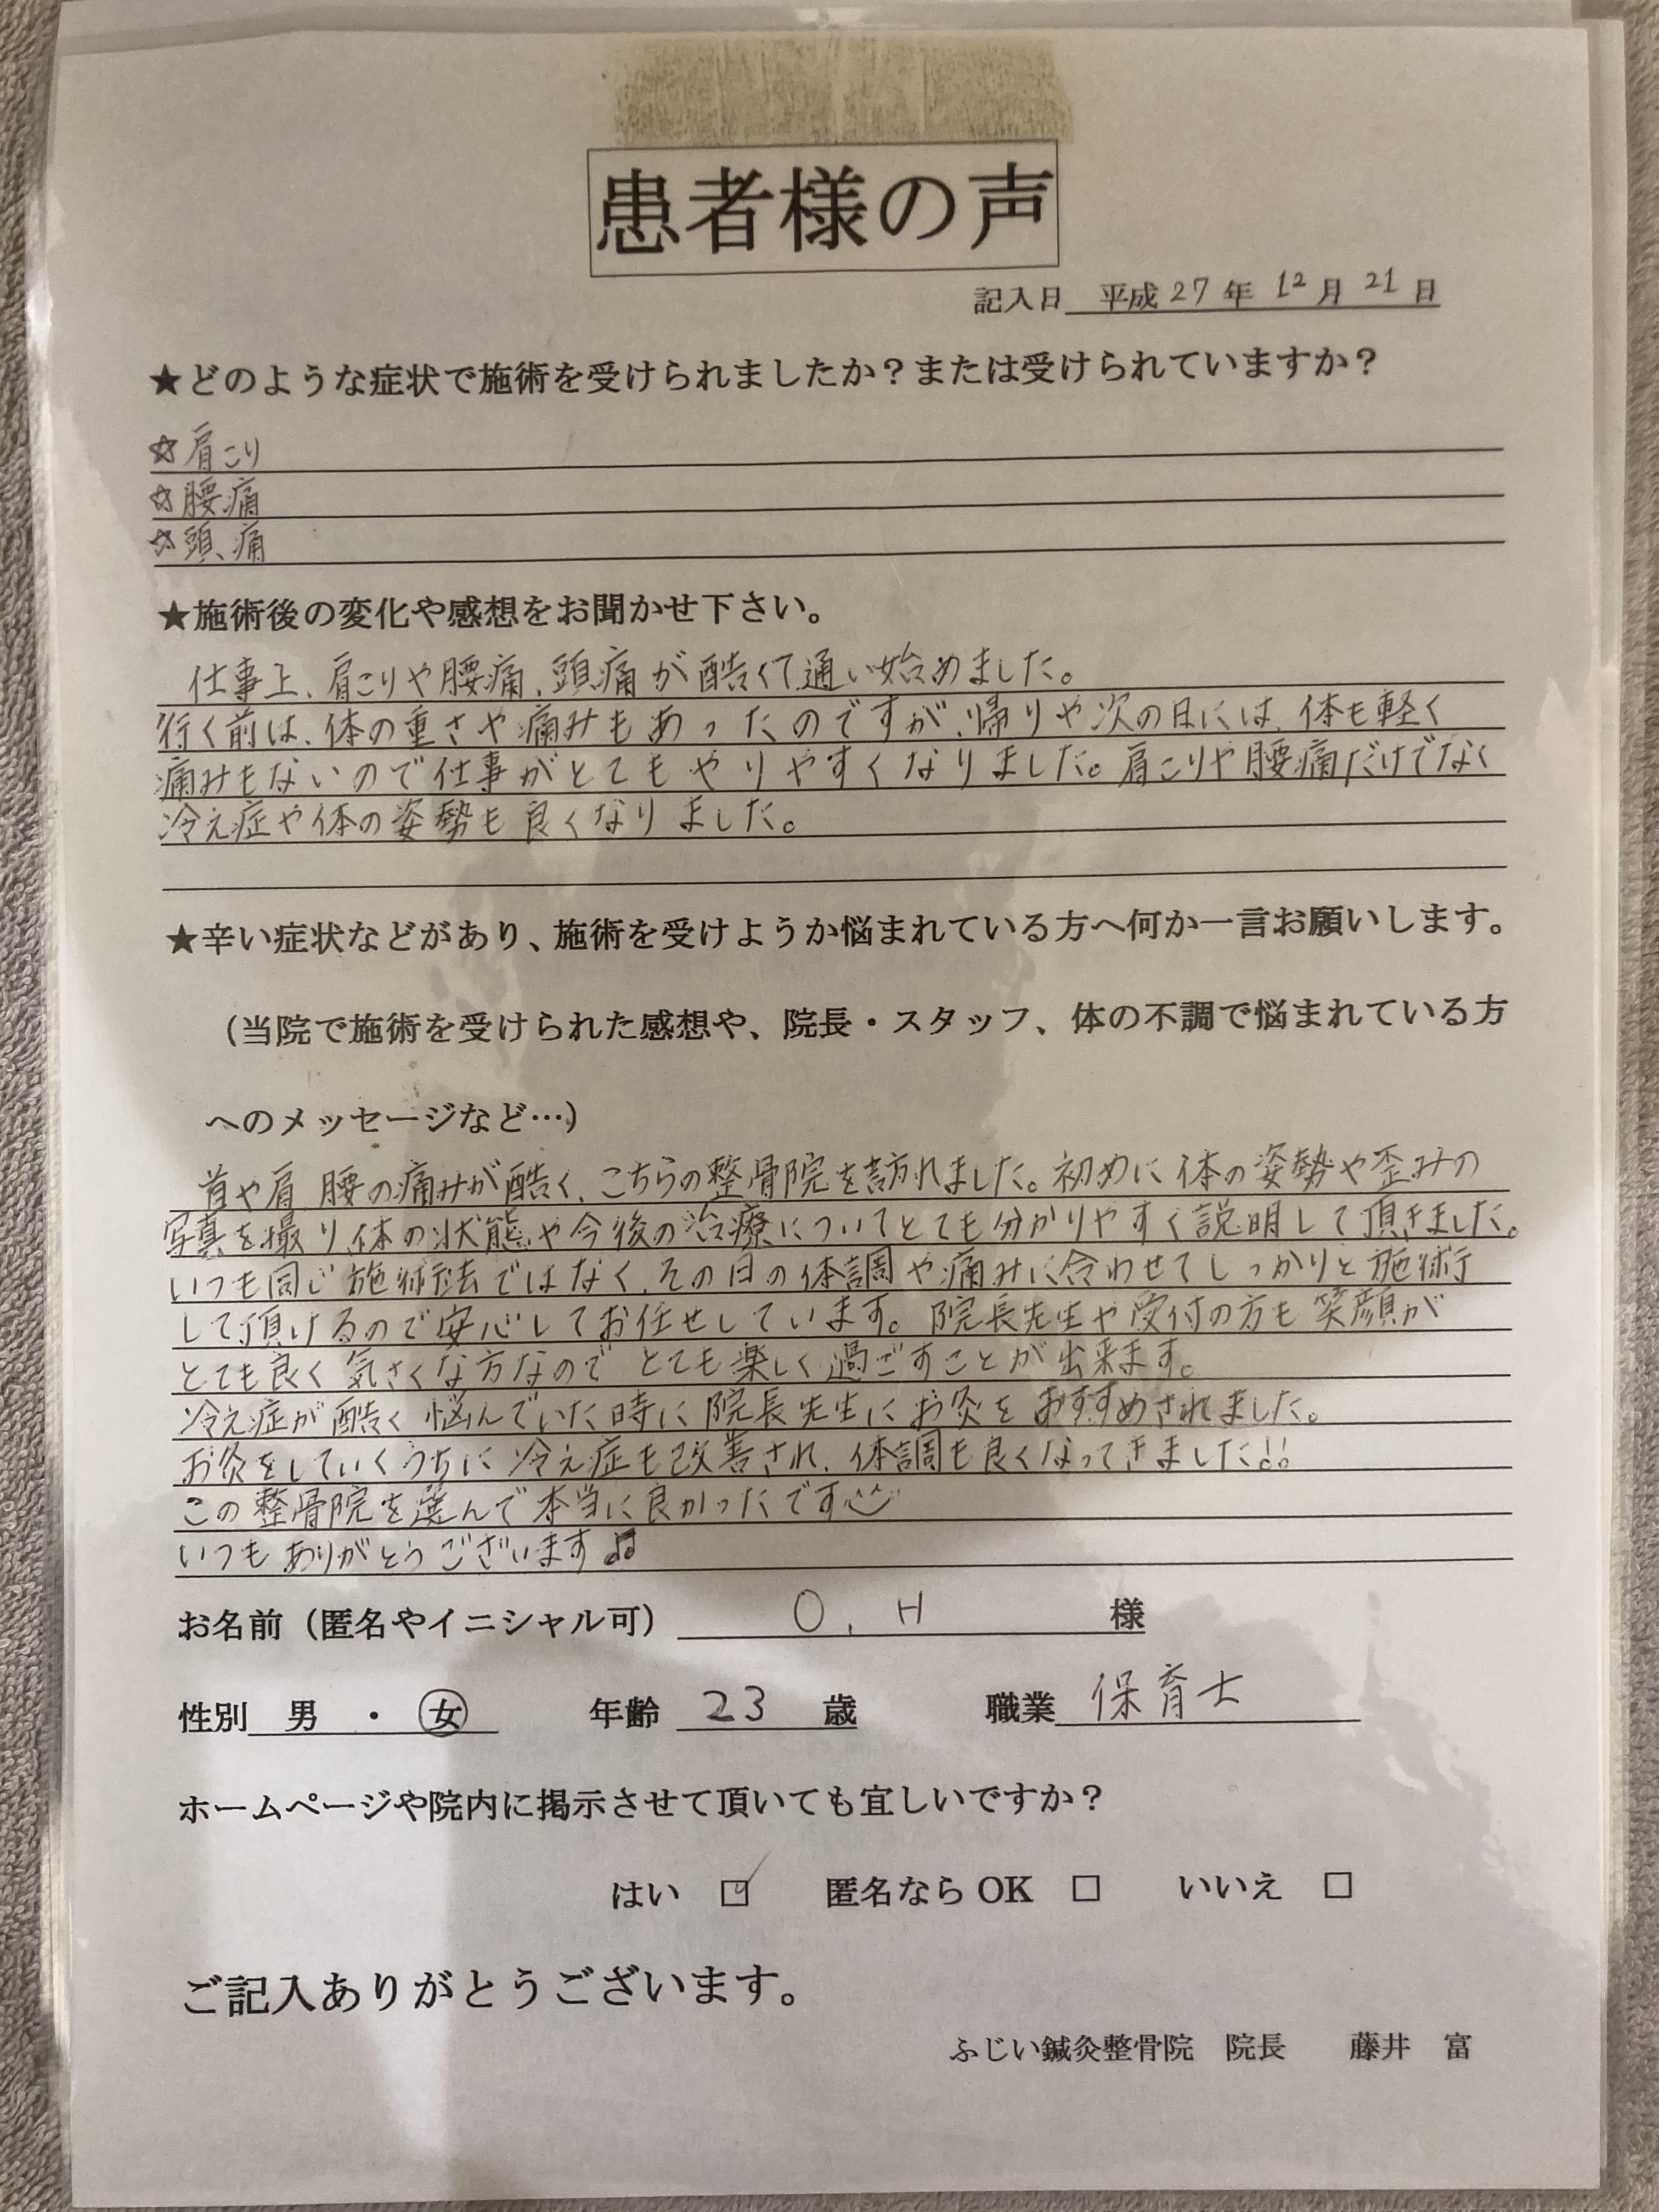 患者様の声
記入日 平成27年12月21日
★どのような症状で施術を受けられましたか？または受けられていますか？
☆肩こり
☆腰痛
☆頭痛
★施術後の変化や感想をお聞かせ下さい。
仕事上、肩こりや腰痛、頭痛が酷くて通い始めました。
行く前は、体の重さや痛みもあったのですが、帰りや次の日には、体も軽く
痛みもないので仕事がとてもやりやすくなりました。肩こりや腰痛だけでなく
冷え症や体の姿勢も良くなりました。
★辛い症状などがあり、施術を受けようか悩まれている方へ何か一言お願いします。
（当院で施術を受けられた感想や、院長・スタッフ、体の不調で悩まれている方
へのメッセージなど…）
首や肩、腰の痛みが酷く、こちらの整骨院を訪れました。初めに体の姿勢や歪みの
写真を撮り、体の状態や今後の治療についてとても分かりやすく説明して頂きました。
いつも同じ施術法ではなく、その日の体調や痛みに合わせてしっかりと施術
して頂けるので安心してお任せしています。院長先生や受付の方も笑顔が
とても良く気さくな方なのでとても楽しく過ごすことが出来ます。
冷え症が酷く悩んでいた時に院長先生にお灸をおすすめされました。
お灸をしていくうちに冷え症も改善され、体調も良くなってきました!!
この整骨院を選んで本当に良かったです^^
いつもありがとうございます♫
お名前（匿名やイニシャル可） O.H 様
性別 男 ・ 女 年齢 23 歳 職業 保育士
ホームページや院内に掲示させて頂いても宜しいですか？
はい ☑ 匿名なら OK □ いいえ □
ご記入ありがとうございます。
ふじい鍼灸整骨院 院長 藤井 富